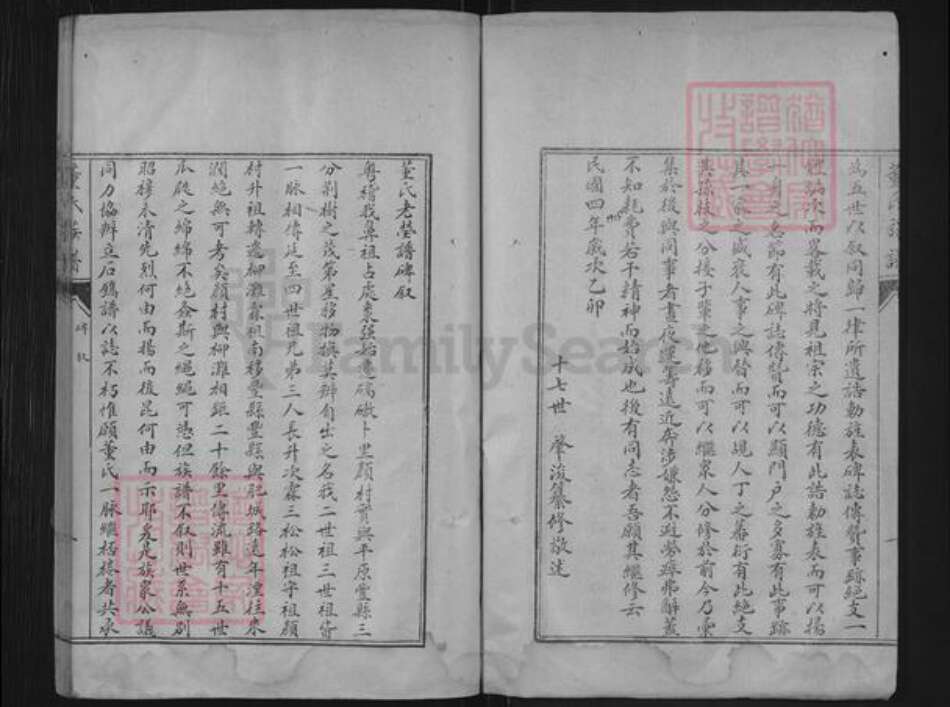 為五世以叙同歸一律所遺誥勅旌表碑誌傳贊事跡絕支一
體編次而畧載之將見祖宗之功德有此誥勅旌表而可以揚
十月之忠節有此碑誌傳贊而可以顯門户之多寡有此事跡
其一家之盛衰人事之興替而可以現人丁之蕃衍有此絕支
其孫枝之分接子輩之他移而可以繼眾人分修於前今乃彙
集於後與同事者晝夜運籌遠近奔涉嫌怨不避勞瘁弗辭蓋
不知耗費若干精神而始成也後有同志者吾願其繼修云
民國四年歲次乙卯
十七世 肇浚纂修敬述
董氏老塋譜碑叙
粵稽我鼻祖占處棗强始遷碻磝卜里顔村實與平原愛縣三
分别樹之茂第星移物換莫辨自出之名我二世祖三世祖皆
一脉相傳延至四世祖兄弟三人長升次霖三松松祖守祖顔
村升祖轉遷柳灘霖祖南移豐縣豐縣與肥城路遠年湮往來
濶絕無可考矣顔村與柳灘相距二十餘里傳流雖有十五世
瓜瓞之綿綿不絕螽斯之繩繩可慿但族譜不叙則世系無别
昭穆未清先烈何由而揚而後昆何由而示耶爰是族衆公議
同力協辦立石鎸譜以誌不朽惟願董氏一脉繼梧檟者共承
董氏族譜
碑叙
FamilySearch